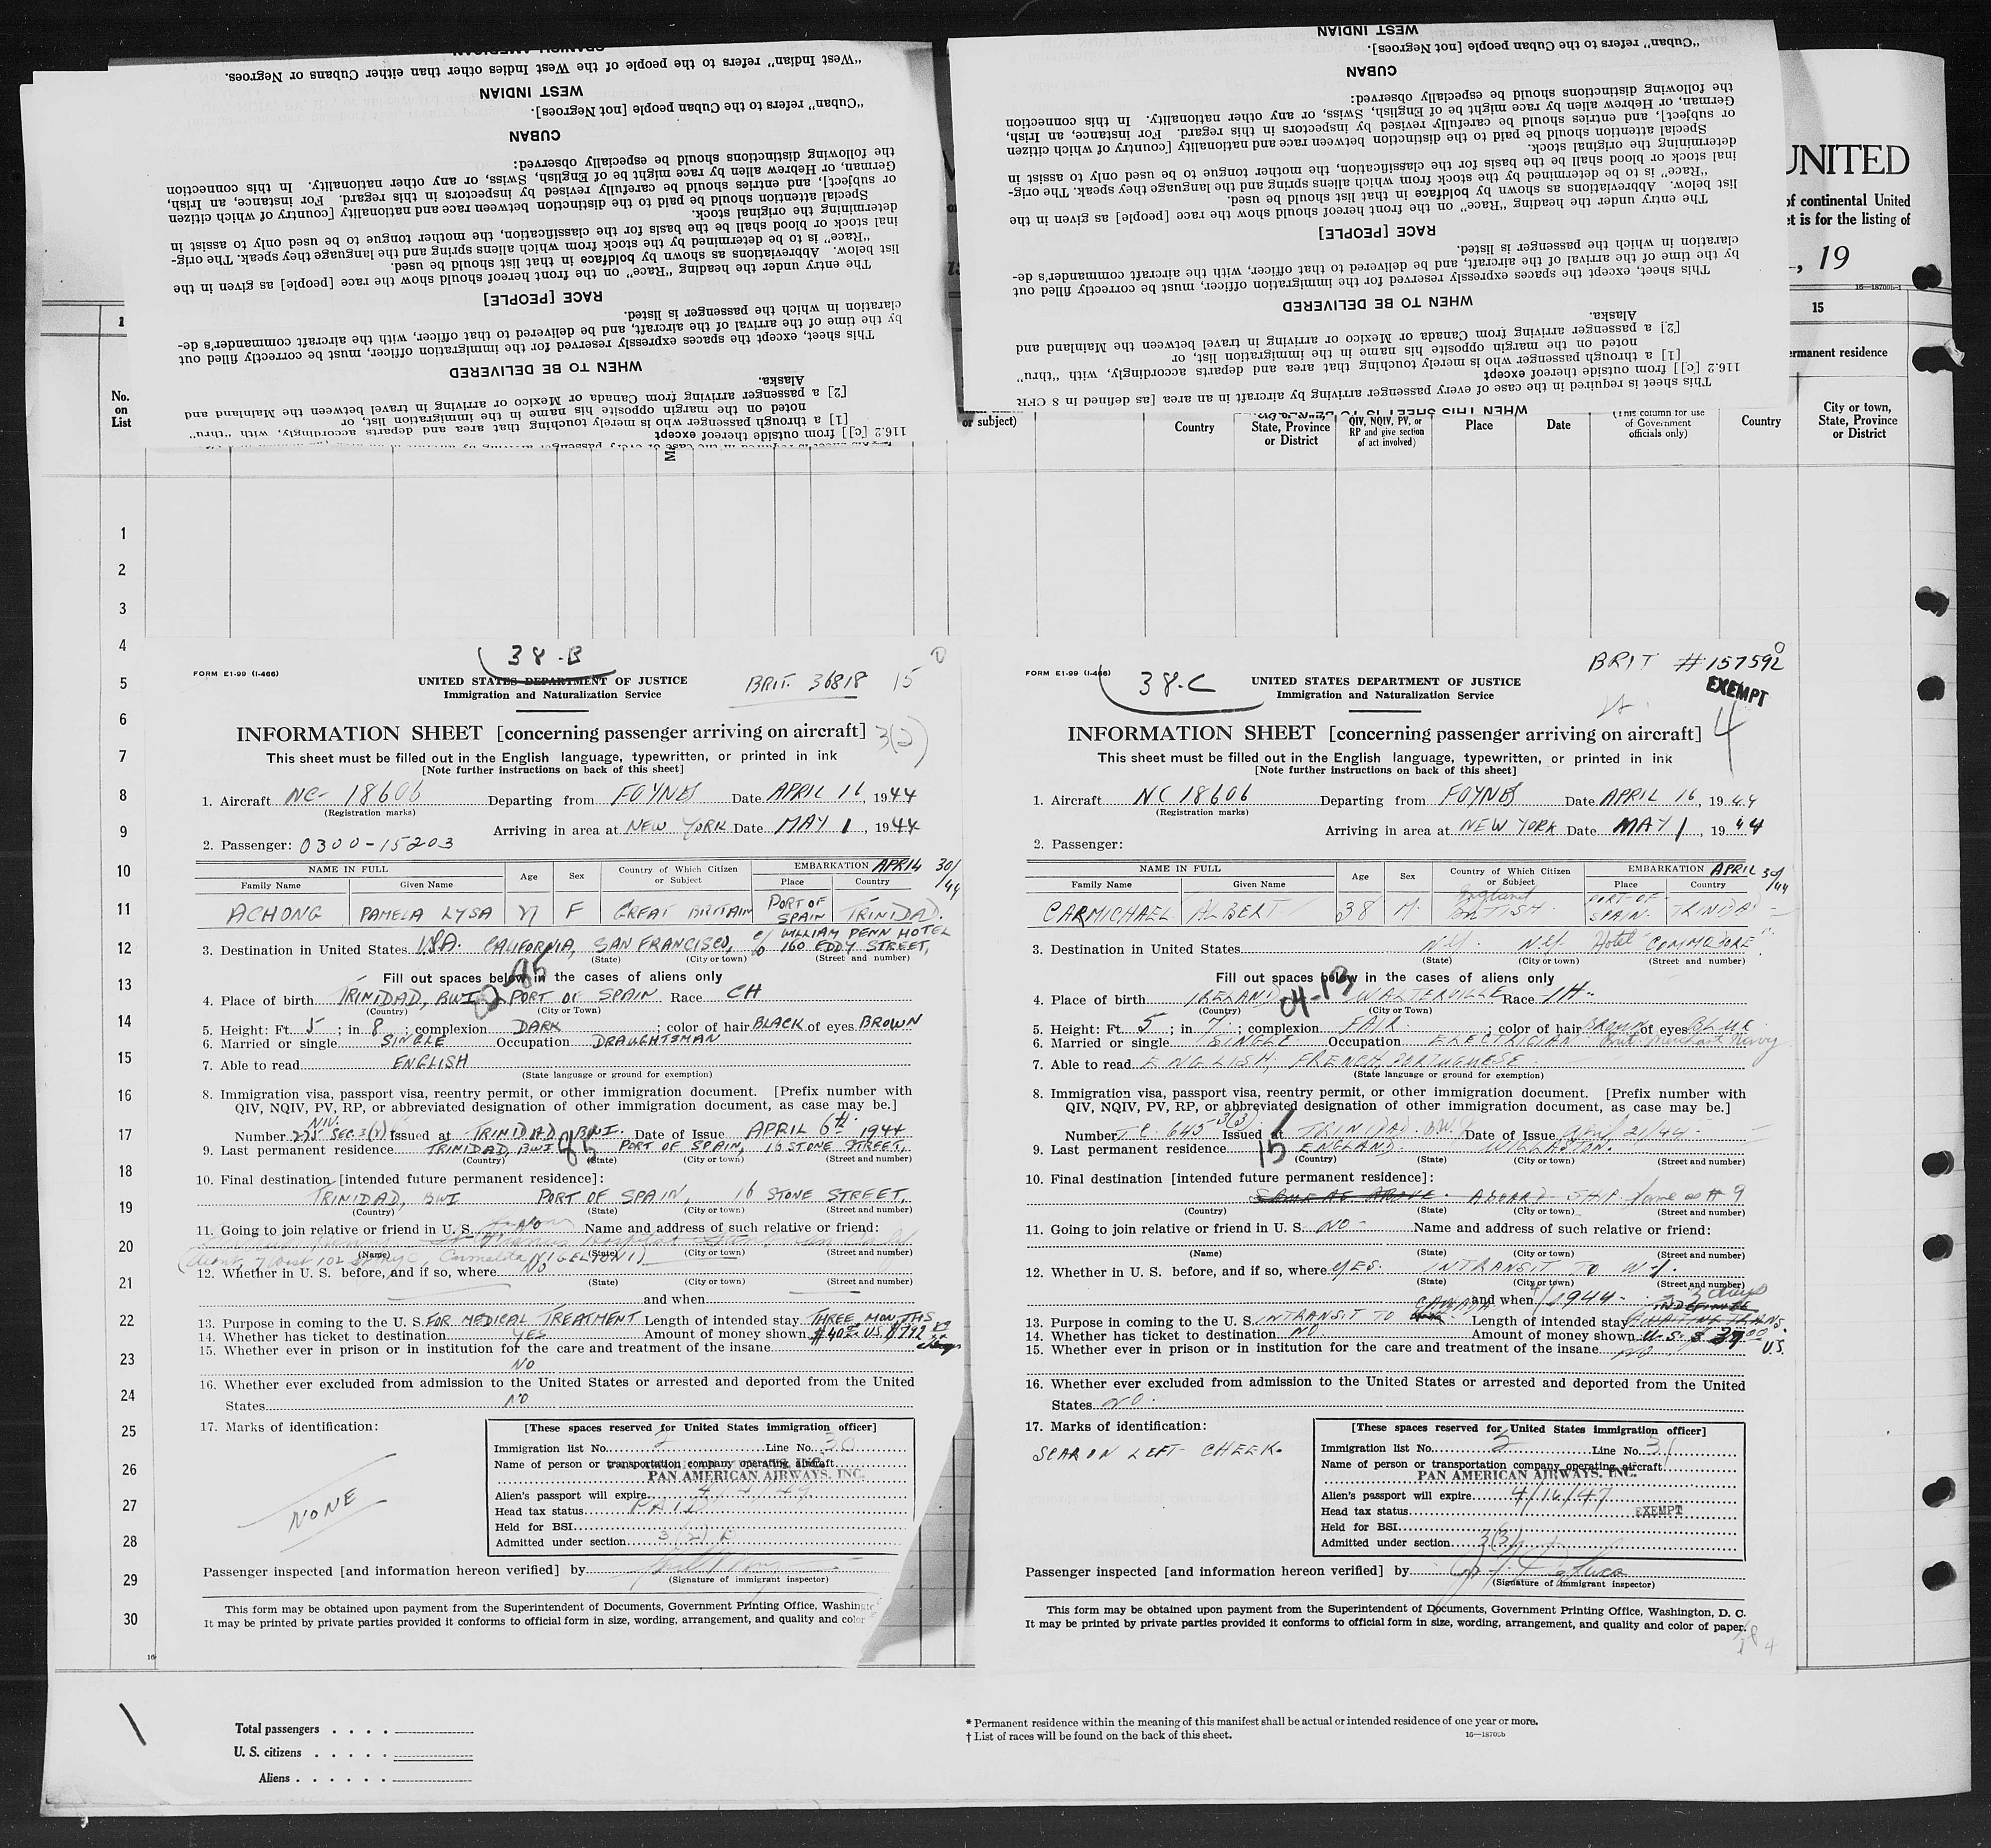 SPANISH AMERICAN
"West Indian" refers to the people of the West Indies other than either Cubans or Negroes.
WEST INDIAN
"Cuban" refers to the Cuban people [not Negroes].
CUBAN
the following distinctions should be especially observed:
German, or Hebrew alien by race might be of English, Swiss, or any other nationality. In this connection
or subject], and entries should be carefully revised by inspectors in this regard. For instance, an Irish,
Special attention should be paid to the distinction between race and nationality [country of which citizen
determining the original stock.
inal stock or blood shall be the basis for the classification, the mother tongue to be used only to assist in
"Race" is to be determined by the stock from which aliens spring and the language they speak. The orig-
list below. Abbreviations as shown by boldface in that list should be used.
The entry under the heading "Race" on the front hereof should show the race [people] as given in the
RACE [PEOPLE]
claration in which the passenger is listed.
by the time of the arrival of the aircraft, and be delivered to that officer, with the aircraft commander's de-
This sheet, except the spaces expressly reserved for the immigration officer, must be correctly filled out
WHEN TO BE DELIVERED
Alaska.
[2] a passenger arriving from Canada or Mexico or arriving in travel between the Mainland and
noted on the margin opposite his name in the immigration list, or
[1] a through passenger who is merely touching that area and departs accordingly, with "thru"
116.2 [c]] from outside thereof except
WEST INDIAN
"Cuban" refers to the Cuban people [not Negroes].
CUBAN
the following distinctions should be especially observed:
German, or Hebrew alien by race might be of English, Swiss, or any other nationality. In this connection
or subject], and entries should be carefully revised by inspectors in this regard. For instance, an Irish,
Special attention should be paid to the distinction between race and nationality [country of which citizen
determining the original stock.
inal stock or blood shall be the basis for the classification, the mother tongue to be used only to assist in
"Race" is to be determined by the stock from which aliens spring and the language they speak. The orig-
list below. Abbreviations as shown by boldface in that list should be used.
The entry under the heading "Race" on the front hereof should show the race [people] as given in the
RACE [PEOPLE]
claration in which the passenger is listed.
by the time of the arrival of the aircraft, and be delivered to that officer, with the aircraft commander's de-
This sheet, except the spaces expressly reserved for the immigration officer, must be correctly filled out
WHEN TO BE DELIVERED
Alaska.
[2] a passenger arriving from Canada or Mexico or arriving in travel between the Mainland and
noted on the margin opposite his name in the immigration list, or
[1] a through passenger who is merely touching that area and departs accordingly, with "thru"
116.2 [c]] from outside thereof except
This sheet is required in the case of every passenger arriving by aircraft in an area [as defined in 8 CFR
WHEN THIS SHEET IS TO BE
UNITED
of continental United
et is for the listing of
, 19
16—18709b-1
1
15
rmanent residence
No.
on
List
or subject)
Country
State, Province
or District
QIV, NQIV, PV, or
RP and give section
of act involved)
Place
Date
(This column for use
of Government
officials only)
Country
City or town,
State, Province
or District
1
2
3
4
5
6
7
8
9
10
11
12
13
14
15
16
17
18
19
20
21
22
23
24
25
26
27
28
29
30
38-B
FORM E1-99 (I-466)
UNITED STATES DEPARTMENT OF JUSTICE
BRIT. 36818 15
Immigration and Naturalization Service
INFORMATION SHEET [concerning passenger arriving on aircraft]
3(2)
This sheet must be filled out in the English language, typewritten, or printed in ink
[Note further instructions on back of this sheet]
1. Aircraft NC- 18606 Departing from FOYNES Date APRIL 16, 1944
(Registration marks)
Arriving in area at NEW YORK Date MAY 1, 1944
2. Passenger: 0300-15203
NAME IN FULL Age Sex Country of Which Citizen or Subject EMBARKATION APRIL 30/44
Family Name Given Name Place Country
ACHONG PAMELA LYSA F GREAT BRITAIN PORT OF SPAIN TRINIDAD.
3. Destination in United States USA. CALIFORNIA, SAN FRANCISCO, c/o WILLIAM PENN HOTEL 160 EDDY STREET,
(State) (City or town) (Street and number)
Fill out spaces below in the cases of aliens only
4. Place of birth TRINIDAD, BWI PORT OF SPAIN Race CH
(Country) (City or Town)
5. Height: Ft. 5; in 8; complexion DARK; color of hair BLACK of eyes BROWN
6. Married or single SINGLE Occupation DRAUGHTSMAN
7. Able to read ENGLISH
(State language or ground for exemption)
8. Immigration visa, passport visa, reentry permit, or other immigration document. [Prefix number with
QIV, NQIV, PV, RP, or abbreviated designation of other immigration document, as case may be.]
NIV.
Number 275 SEC 3(1) Issued at TRINIDAD, BWI. Date of Issue APRIL 6th 1944
9. Last permanent residence TRINIDAD, BWI 85 PORT OF SPAIN, 16 STONE STREET,
(Country) (State) (City or town) (Street and number)
10. Final destination [intended future permanent residence]:
TRINIDAD, BWI PORT OF SPAIN, 16 STONE STREET,
(Country) (State) (City or town) (Street and number)
11. Going to join relative or friend in U. S. Name and address of such relative or friend:
(Name) (State) (City or town) (Street and number)
12. Whether in U. S. before, and if so, where NO
(State) (City or town) (Street and number)
and when
13. Purpose in coming to the U. S. FOR MEDICAL TREATMENT Length of intended stay THREE MONTHS
14. Whether has ticket to destination YES Amount of money shown
15. Whether ever in prison or in institution for the care and treatment of the insane
NO
16. Whether ever excluded from admission to the United States or arrested and deported from the United
States NO
17. Marks of identification:
NONE
[These spaces reserved for United States immigration officer]
Immigration list No. 2 Line No. 30
Name of person or transportation company operating aircraft
PAN AMERICAN AIRWAYS, INC.
Alien's passport will expire 4/4/49
Head tax status PAID
Held for BSI
Admitted under section 3(2)
Passenger inspected [and information hereon verified] by
(Signature of immigrant inspector)
This form may be obtained upon payment from the Superintendent of Documents, Government Printing Office, Washing
It may be printed by private parties provided it conforms to official form in size, wording, arrangement, and quality and color
38-C
FORM E1-99 (I-466)
BRIT #157592
UNITED STATES DEPARTMENT OF JUSTICE
EXEMPT
Immigration and Naturalization Service
4
INFORMATION SHEET [concerning passenger arriving on aircraft]
This sheet must be filled out in the English language, typewritten, or printed in ink
[Note further instructions on back of this sheet]
1. Aircraft NC 18606 Departing from FOYNES Date APRIL 16, 1944
(Registration marks)
Arriving in area at NEW YORK Date MAY 1, 1944
2. Passenger:
NAME IN FULL Age Sex Country of Which Citizen or Subject EMBARKATION APRIL 30/44
Family Name Given Name Place Country
CARMICHAEL ALBERT 38 M. England BRITISH. PORT-OF-SPAIN. TRINIDAD
3. Destination in United States N.Y. N.Y. Hotel COMMODORE
(State) (City or town) (Street and number)
Fill out spaces below in the cases of aliens only
04-13
4. Place of birth IRELAND WALTERVILLE Race IH.
(Country) (City or Town)
5. Height: Ft. 5; in 7; complexion FAIR.; color of hair BROWN of eyes BLUE
6. Married or single SINGLE Occupation ELECTRICIAN Brit. Merchant Navy
7. Able to read ENGLISH, FRENCH, PORTUGUESE
(State language or ground for exemption)
8. Immigration visa, passport visa, reentry permit, or other immigration document. [Prefix number with
QIV, NQIV, PV, RP, or abbreviated designation of other immigration document, as case may be.]
Number T.C. 645 3(3) Issued at TRINIDAD. B.W.I. Date of Issue April 21/44
9. Last permanent residence 15 ENGLAND. WILLASTON.
(Country) (State) (City or town) (Street and number)
10. Final destination [intended future permanent residence]:
SAME AS ABOVE. ABOARD SHIP. Same as # 9
(Country) (State) (City or town) (Street and number)
11. Going to join relative or friend in U. S. NO- Name and address of such relative or friend:
(Name) (State) (City or town) (Street and number)
12. Whether in U. S. before, and if so, where YES. INTRANSIT TO
(State) (City or town) (Street and number)
and when 1944- days
13. Purpose in coming to the U. S. INTRANSIT TO CANADA Length of intended stay
14. Whether has ticket to destination NO. Amount of money shown U.S. $
15. Whether ever in prison or in institution for the care and treatment of the insane NO
16. Whether ever excluded from admission to the United States or arrested and deported from the United
States NO.
17. Marks of identification:
SCAR ON LEFT CHEEK.
[These spaces reserved for United States immigration officer]
Immigration list No. 2 Line No. 31
Name of person or transportation company operating aircraft
PAN AMERICAN AIRWAYS, INC.
Alien's passport will expire 4/16/47
Head tax status EXEMPT
Held for BSI
Admitted under section 3(3)
Passenger inspected [and information hereon verified] by
(Signature of immigrant inspector)
This form may be obtained upon payment from the Superintendent of Documents, Government Printing Office, Washington, D. C.
It may be printed by private parties provided it conforms to official form in size, wording, arrangement, and quality and color of paper.
Total passengers
U. S. citizens
Aliens
* Permanent residence within the meaning of this manifest shall be actual or intended residence of one year or more.
† List of races will be found on the back of this sheet.
16—18709b